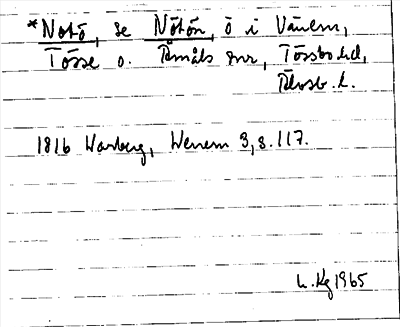 *Notö, se Nötön, ö i Vänern,
Tösse o. Åmåls snr, Tössbo hd,
Älvsb. l.
1816 Warberg, Wenern 3, s. 117.
L. Kg 1965